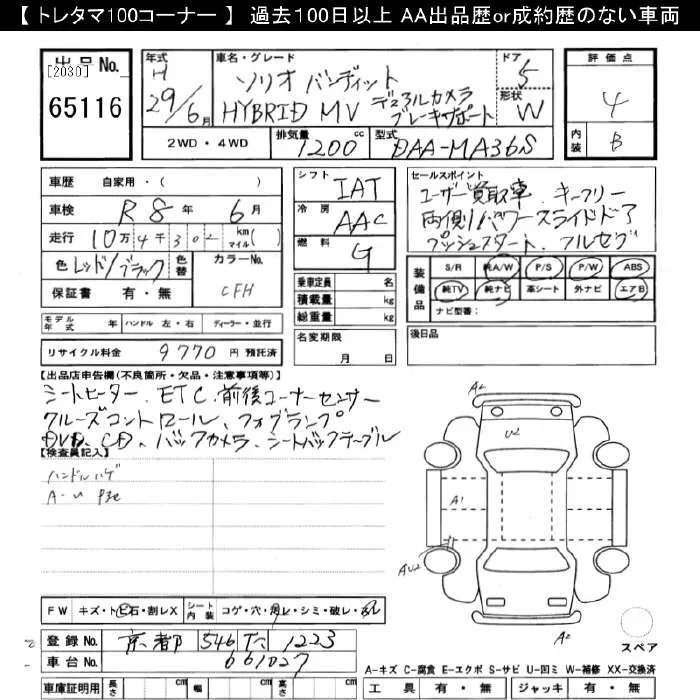 【 トレタマ100コーナー 】 過去100日以上 AA出品歴or成約歴のない車両
出品No. [2030] 65116
年式 H 29/6月
車名・グレード ソリオ バンディット
HYBRID MV デュアルカメラ ブレーキサポート
ドア 5
形状 W
評価点 4
内装 B
2WD・4WD 排気量 1200 cc 型式 DAA-MA36S
車歴 自家用・( )
車検 R8年 6月
走行 10万4千302 km マイル( )
色 レッド/ブラック 色替 カラーNo. CFH
保証書 有・無
シフト IAT
冷房 AAC
燃料 G
乗車定員 名
積載量 kg
総重量 kg
セールスポイント
ユーザー買取車、キーフリー
両側パワースライドドア
プッシュスタート、フルセグ
装備品 S/R 純A/W P/S P/W ABS
純TV 純ナビ 革シート 外ナビ エアB
ナビ型番:
モデル年式 年 ハンドル 左・右 ディーラー・並行
名変期限 月 日
後日品
リサイクル料金 9770 円 預託済
【出品店申告欄(不良箇所・欠品・注意事項等)】
シートヒーター、ETC、前後コーナーセンサー
クルーズコントロール、フォグランプ
DVD、CD、バックカメラ、シートバックテーブル
【検査員記入】
ハンドルハゲ
A-U
A2
U2
A1
AU2
A2
FW キズ・ト ビ石・割レX シート内装 コゲ・穴・汚レ・シミ・破レ・
登録No. 京都 546 1223
車台No. 661027
スペア
A-キズ C-腐食 E-エクボ S-サビ U-凹ミ W-補修 XX-交換済
車庫証明用 長さ cm 幅 cm 高さ cm 工具 有・無 ジャッキ 有・無